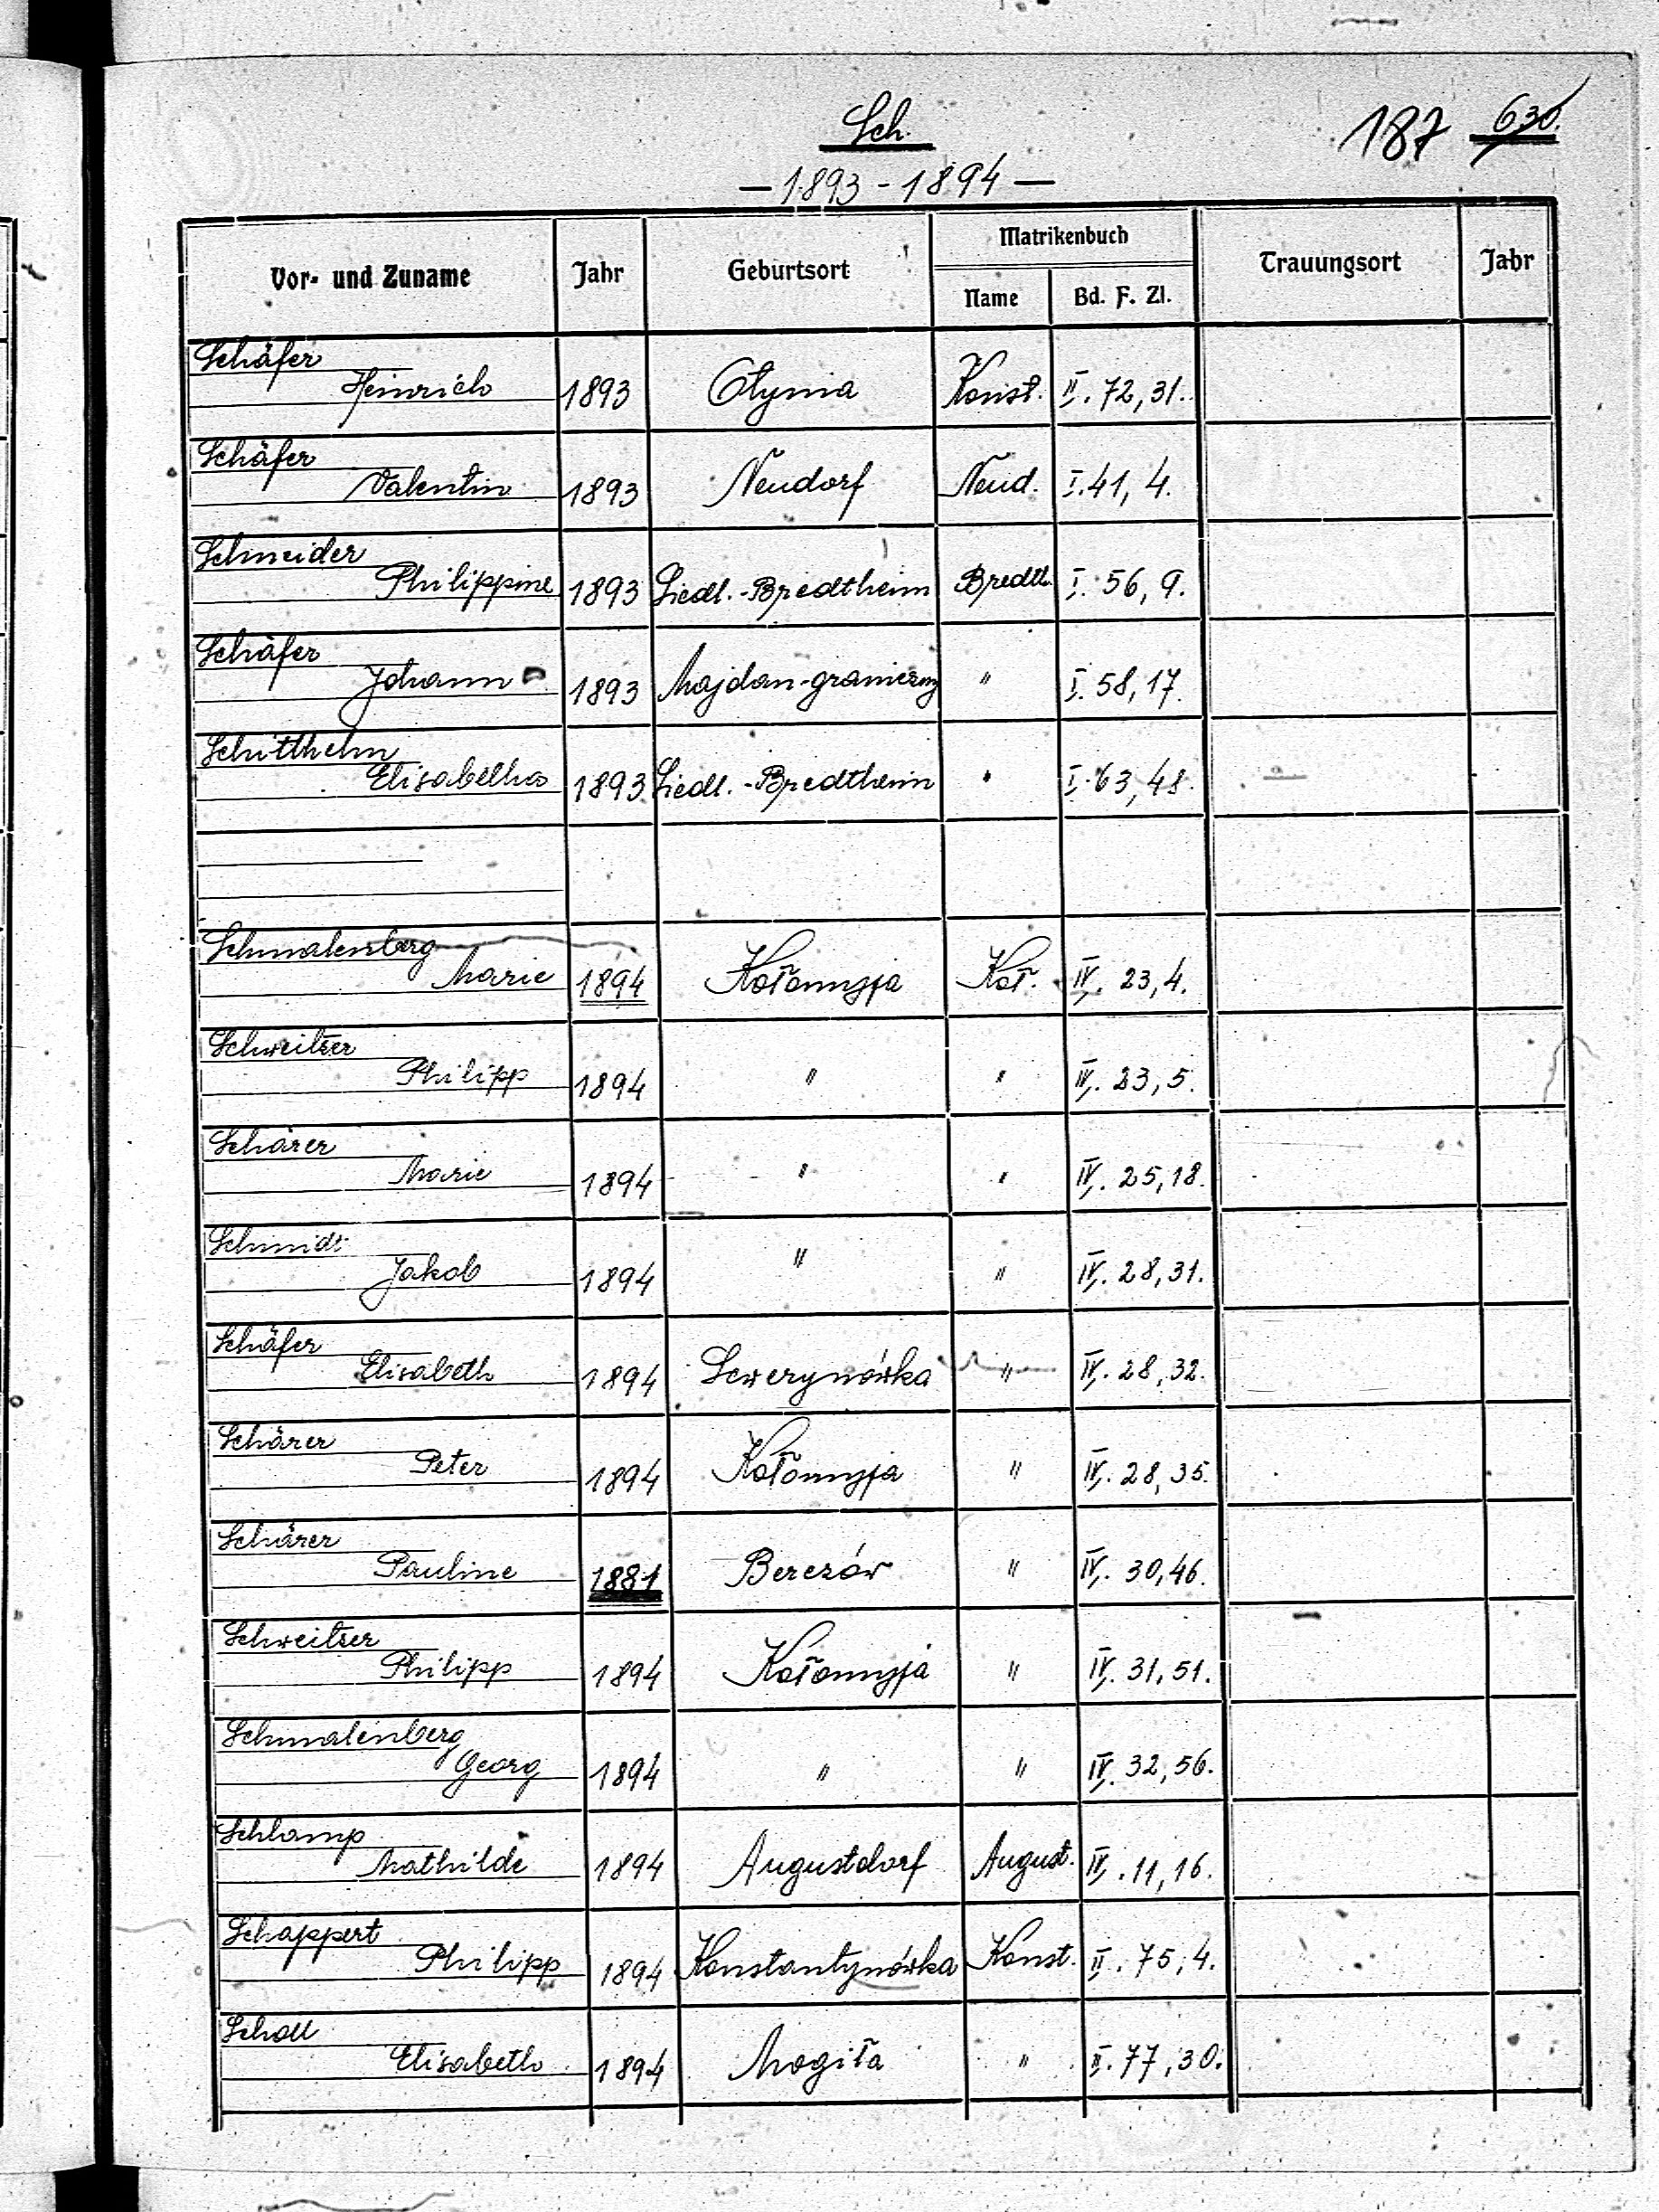 Sch.
187 630.
— 1893 - 1894 —
Vor- und Zuname Jahr Geburtsort Matrikenbuch Trauungsort Jahr
Name Bd. F. Zl.
Schäfer
Heinrich 1893 Otynia Konst. II. 72, 31.
Schäfer
Valentin 1893 Neudorf Neud. I. 41, 4.
Schneider
Philippine 1893 Siedl.-Bredtheim Bredth. I. 56, 9.
Schäfer
Johann 1893 Majdan-graniczny " I. 58, 17.
Schitthelm
Elisabetha 1893 Siedl.-Bredtheim " I. 63, 48.
Schmalenberg
Marie 1894 Kołomyja Koł. IV. 23, 4.
Schweitzer
Philipp 1894 " " IV. 23, 5.
Schärer
Marie 1894 " " IV. 25, 18.
Schmidt
Jakob 1894 " " IV. 28, 31.
Schäfer
Elisabeth 1894 Sewerynówka " IV. 28, 32.
Schärer
Peter 1894 Kołomyja " IV. 28, 35.
Schärer
Pauline 1881 Berezów " IV. 30, 46.
Schweitzer
Philipp 1894 Kołomyja " IV. 31, 51.
Schmalenberg
Georg 1894 " " IV. 32, 56.
Schlamp
Mathilde 1894 Augustdorf August. IV. 11, 16.
Schappert
Philipp 1894 Konstantynówka Konst. II. 75, 4.
Scholl
Elisabeth 1894 Mogiła " II. 77, 30.